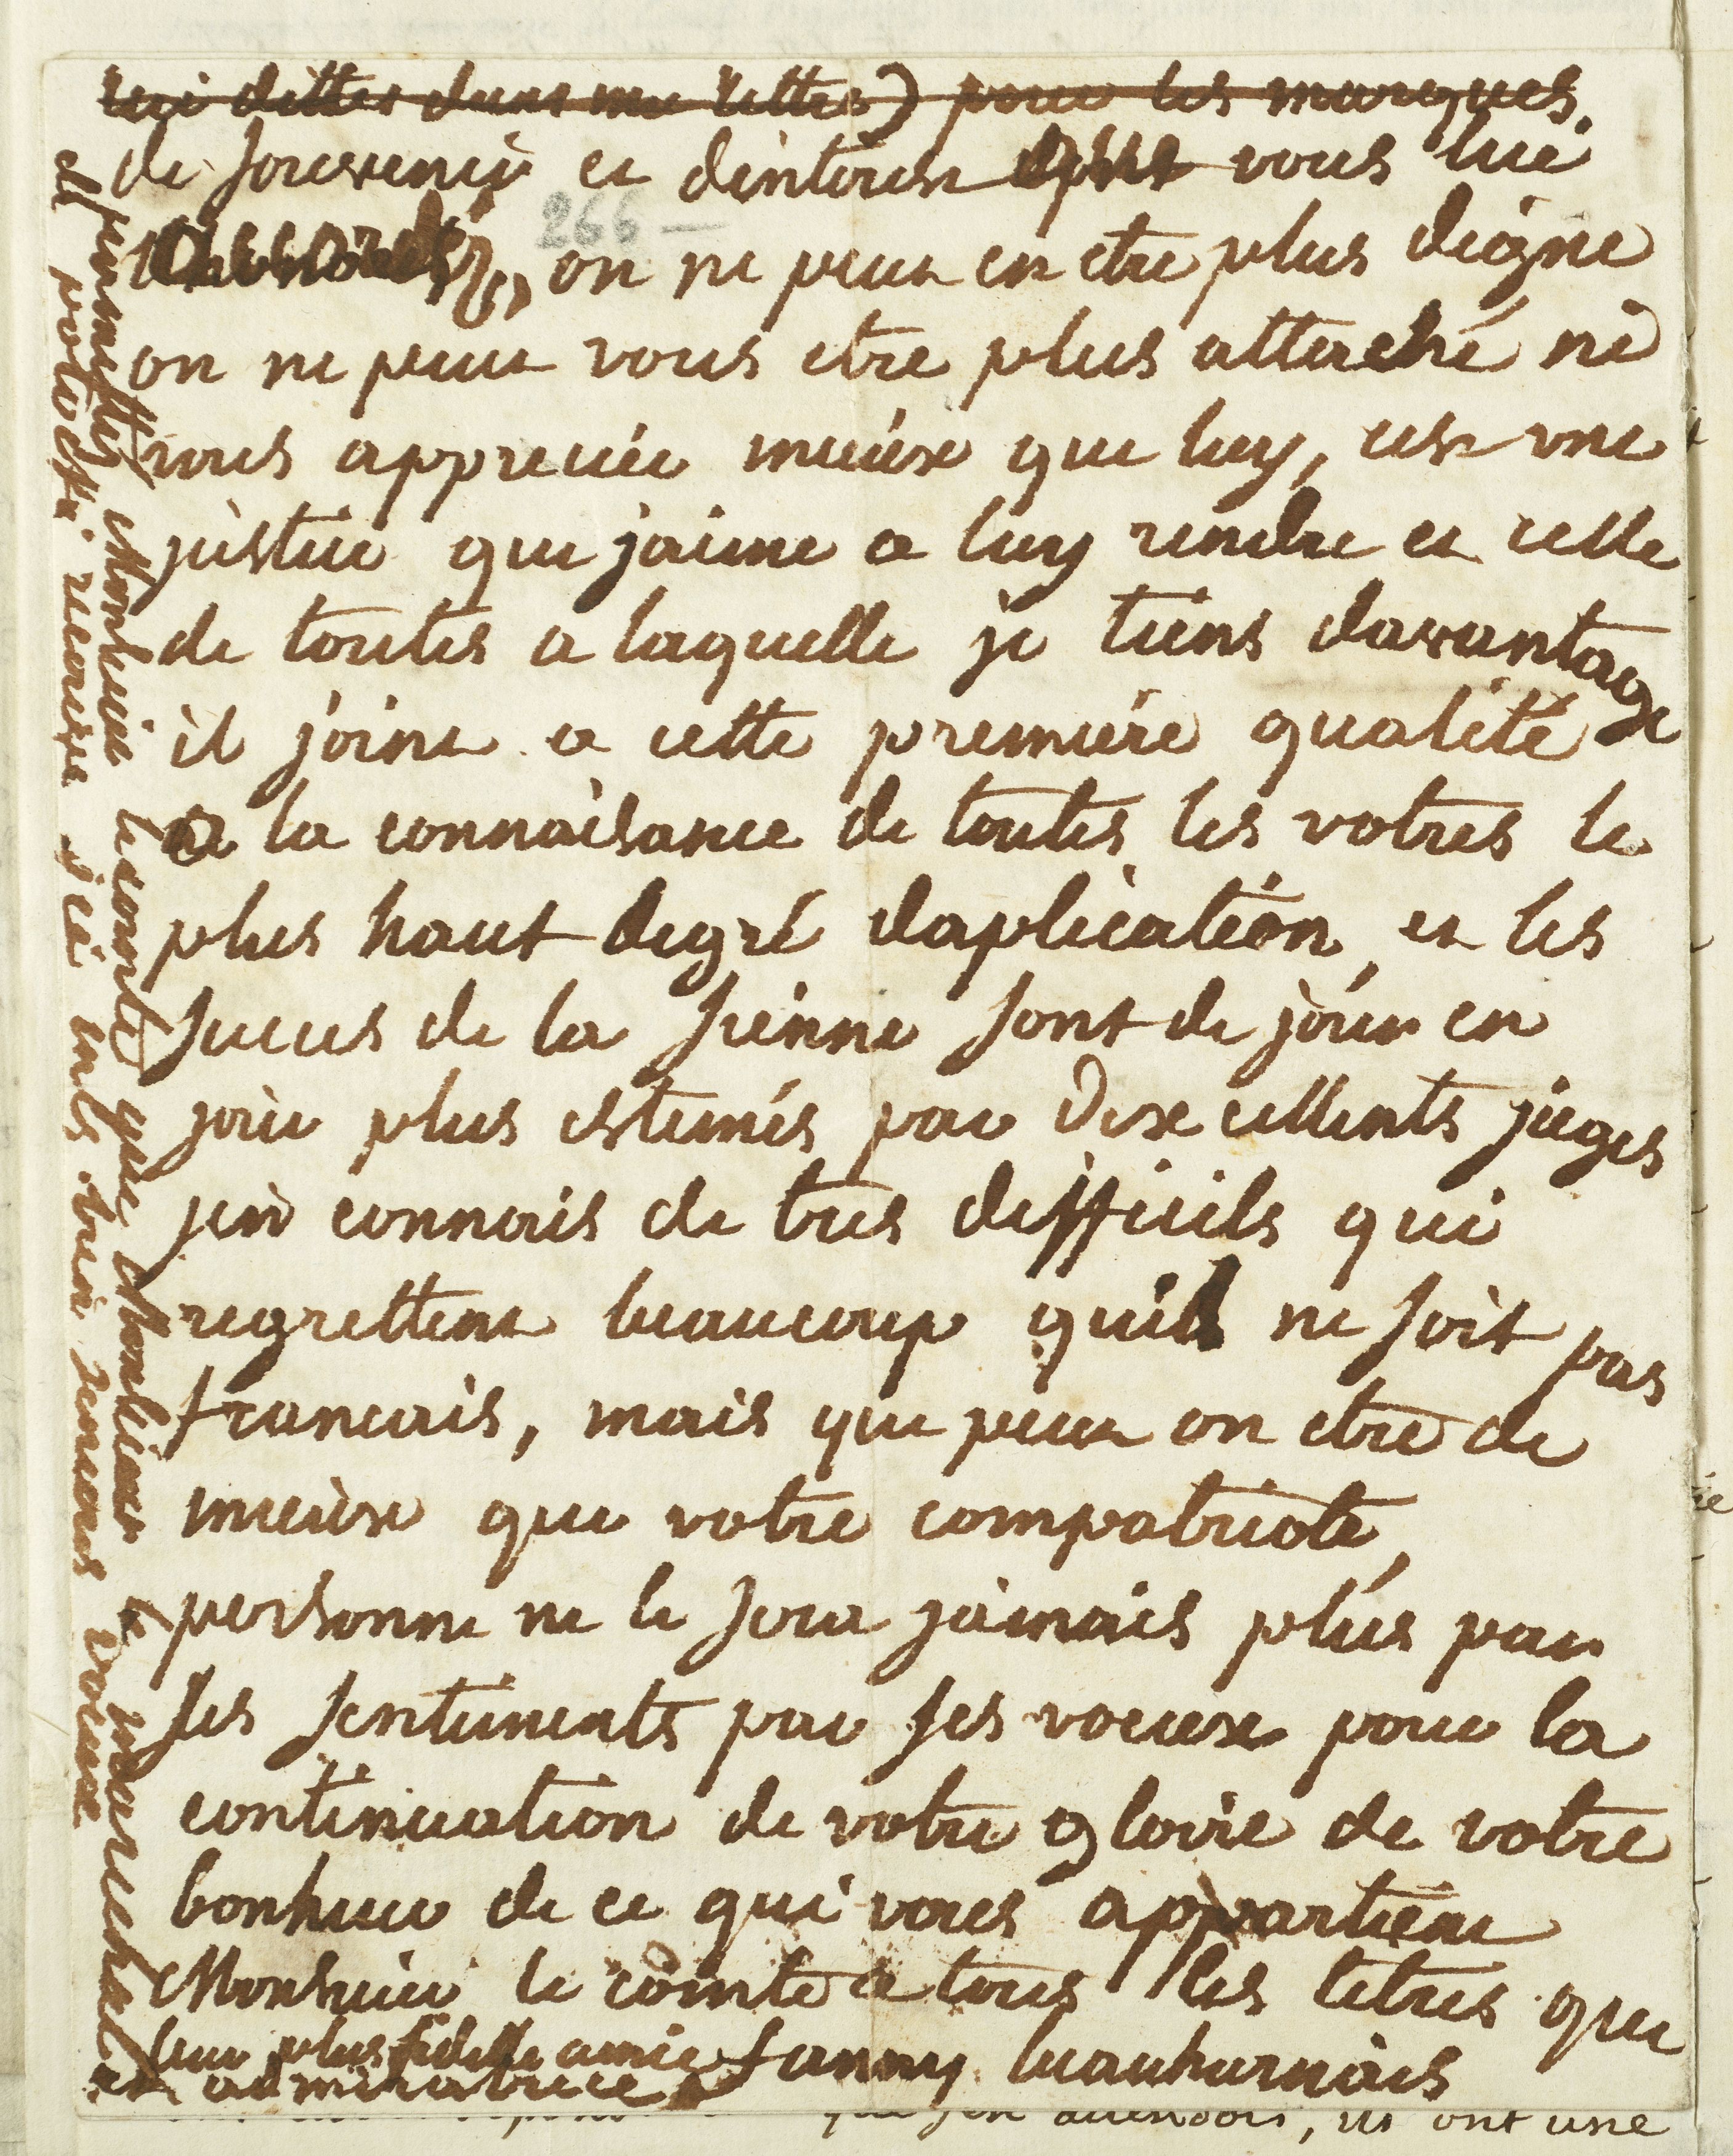 lui dittes dans ma lettre) pour les marques
de souvenir et dinterest vous lui
accordés, on ne peut en etre plus digne
266 —
on ne peut vous etre plus attaché ni
vous apprecier mieux que luy, cest une
justice que jaime a luy rendre et celle
de toutes a laquelle je tiens davantage
il joint a cette premiere qualité
a la connaisance de toutes les votres le
plus haut degré daplication, et les
succes de la sienne sont de jour en
jour plus estimés par dexcellents juges
jen connais de tres difficils qui
regrettent beaucoup quil ne soit pas
francais, mais que peut on etre de
mieux que votre compatriote,
personne ne le sera jamais plus par
ses sentiments par ses voeux pour la
continuation de votre gloire de votre
bonheur de ce qui vous appartient
Monsieur le comte a tous les titres que
leur plus fidelle amie fanny beauharnais
et admiratrice
et permettes Monsieur le comte que Monsieur le marechal
votre recoive ici mes voeux